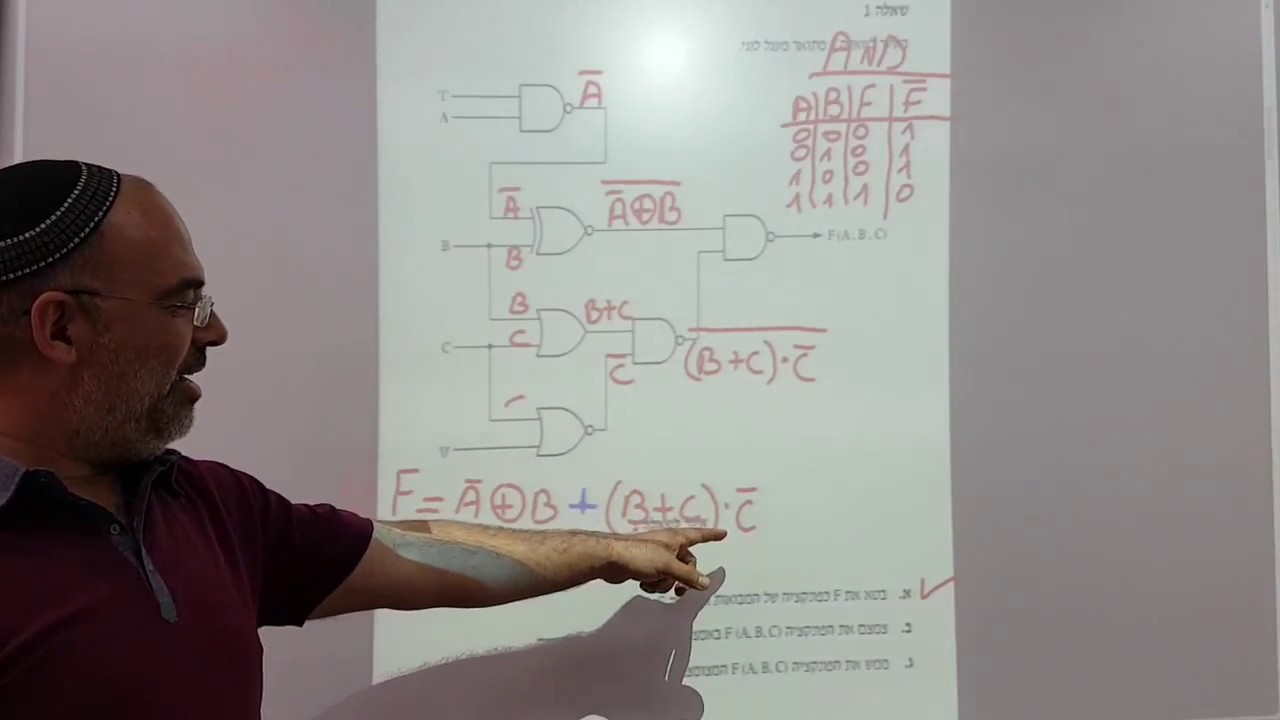 שאלה 1
מתואר מעגל לוגי.
AND
A B F F̅
0 0 0 1
0 1 0 1
1 0 0 1
1 1 1 0
A̅
A
A̅
A̅⊕B
B
B
F(A, B, C)
B
B+C
C
C
C̅
(B+C)·C̅
F = A̅⊕B + (B+C)·C̅
א. בטא את F כפונקציה של המבואות
ב. צמצם את הפונקציה F (A, B, C) באמצ
ג. ממש את הפונקציה F (A, B, C) המצומצ